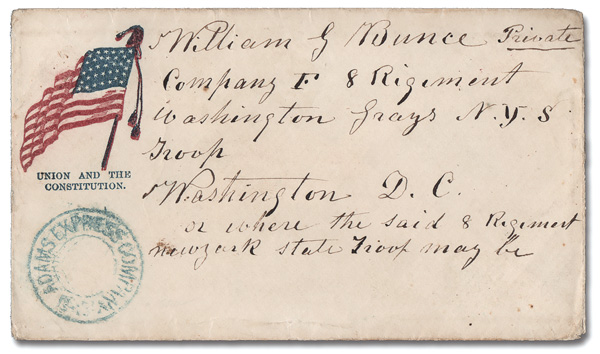 William G Bunce Private
Company F 8 Rigement
Washington Grays N.Y.S
Troop
UNION AND THE
CONSTITUTION.
Washington D.C.
or where the said 8 Rigement
newyork state Troop may be
ADAMS EXPRESS COMPANY